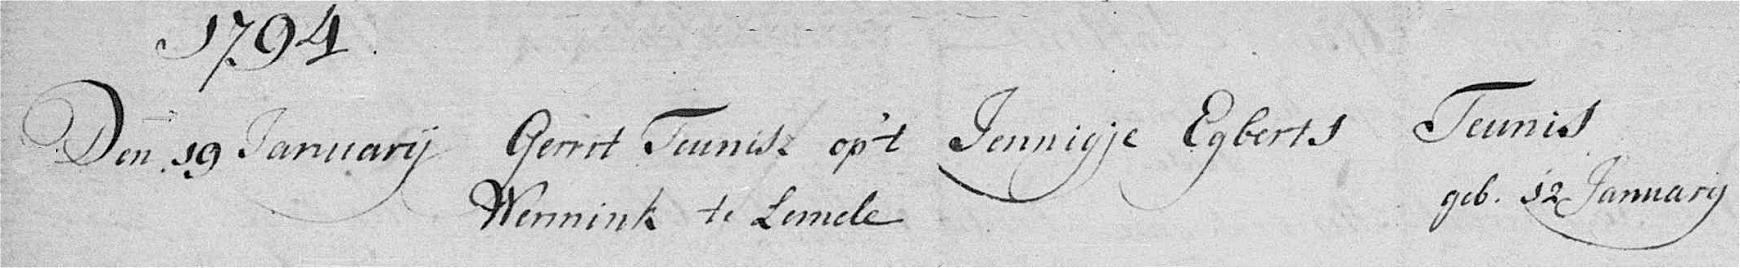 1794.
Den 19 January Gerrit Teunisz op't Jennigje Egberts Teunis
Wennink te Lemele geb. 12 January